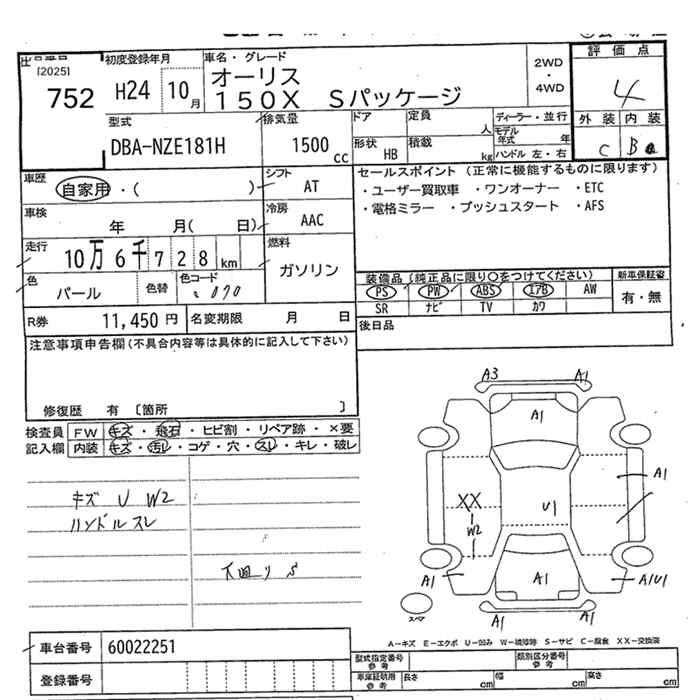 [2025]
752
初度登録年月
H24 10月
車名・グレード
オーリス
150X Sパッケージ
2WD
・
4WD
評価点
4
外装 内装
C B
型式
DBA-NZE181H
排気量
1500 cc
ドア
定員 人
形状 HB
積載 kg
ディーラー・並行
モデル年式 年
ハンドル 左・右
車歴
自家用・( )
シフト
AT
車検
年 月( 日)
冷房
AAC
走行
10万6千728km
燃料
ガソリン
色
パール
色替
色コード
070
R券 11,450円
名変期限 月 日
セールスポイント (正常に機能するものに限ります)
・ユーザー買取車 ・ワンオーナー ・ETC
・電格ミラー ・プッシュスタート ・AFS
装備品(純正品に限り○をつけてください)
新車保証書
PS PW ABS エアB AW
有・無
SR ナビ TV カワ
後日品
注意事項申告欄(不具合内容等は具体的に記入して下さい)
修復歴 有 [箇所 ]
検査員 FW キズ・飛石・ヒビ割・リペア跡・×要
記入欄 内装 キズ・汚レ・コゲ・穴・スレ・キレ・破レ
キズ U W2
ハンドルスレ
下回り S
A3 A1
A1
A1
XX
W2
U1
A1
A1
A1U1
A1
A1
スペア
A-キズ E-エクボ U-凹み W-補修跡 S-サビ C-腐食 XX-交換済
車台番号 60022251
登録番号
型式指定番号 参考
類別区分番号 参考
車庫証明用 参考
長さ cm
幅 cm
高さ cm